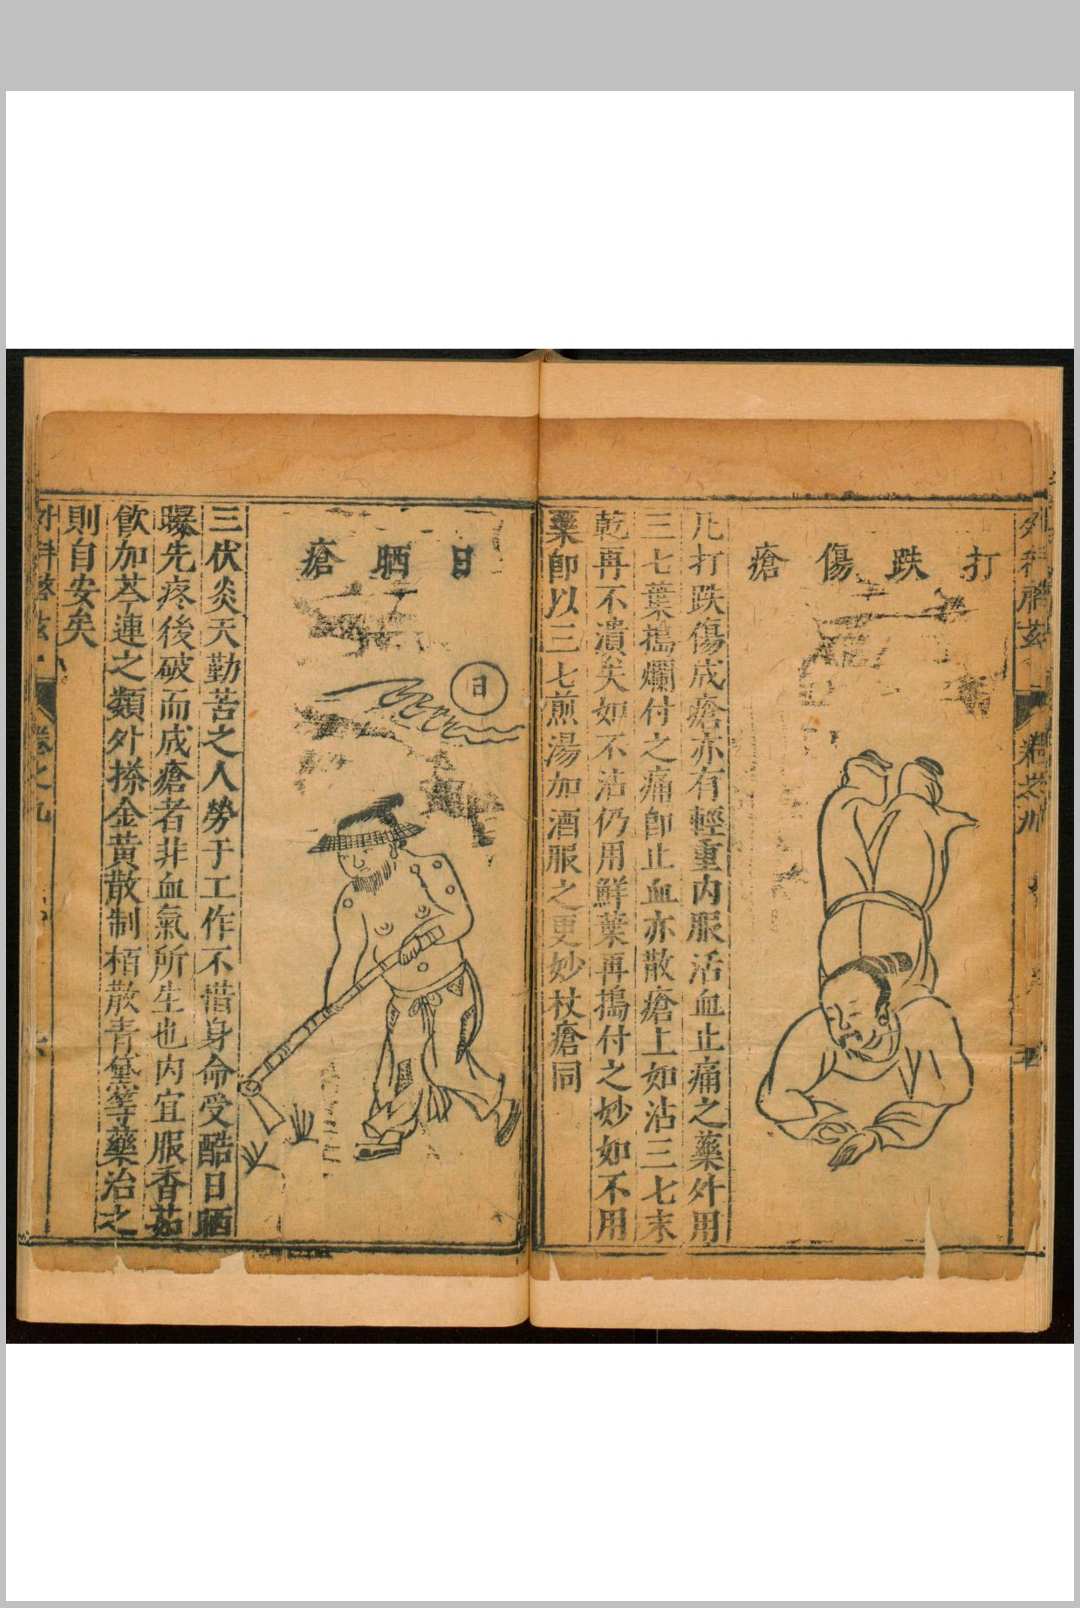 打跌傷瘡
凡打跌傷成瘡亦有輕重内服活血止痛之藥外用
三七葉搗爛付之痛即止血亦散瘡上如沾三七末
乾再不潰矣如不沾仍用鮮葉再搗付之妙如不用
葉即以三七煎湯加酒服之更妙杖瘡同
日晒瘡
日
三伏炎天勤苦之人勞于工作不惜身命受酷日晒
曝先疼後破而成瘡者非血氣所生也内宜服香茹
飲加芩連之類外搽金黄散制栢散青黛等藥治之
則自安矣
卷之九